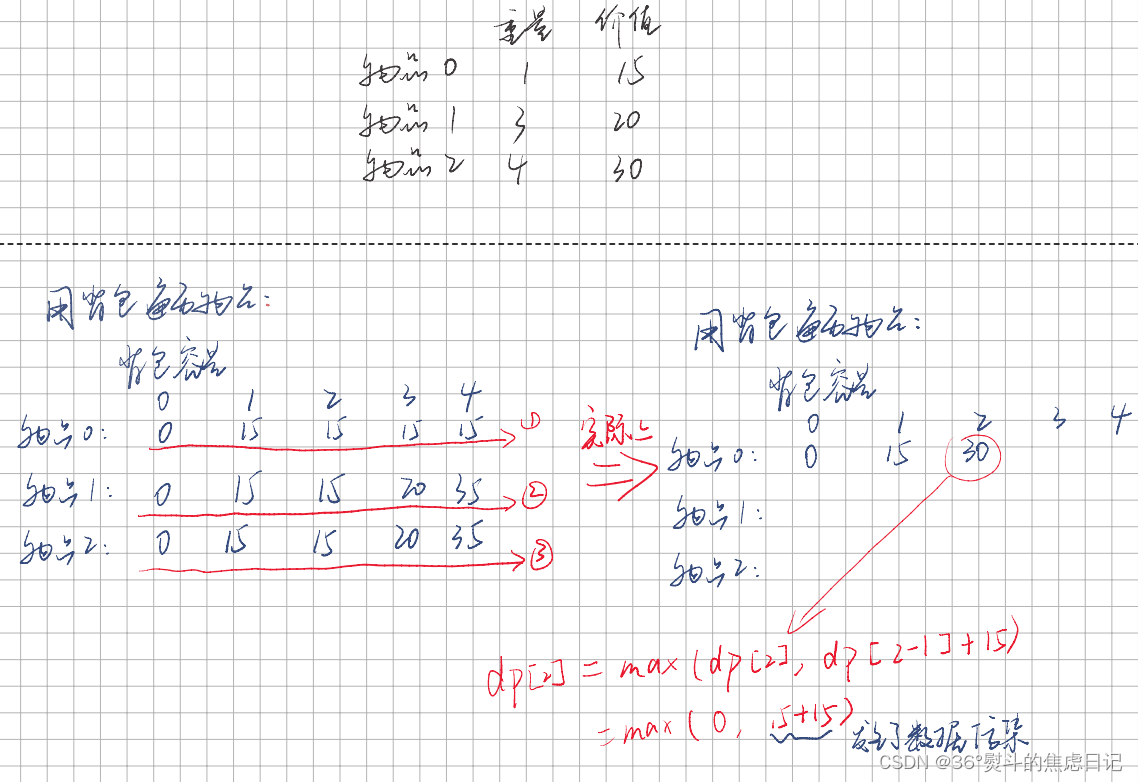 重量 价值
物品0 1 15
物品1 3 20
物品2 4 30
用背包遍历物品:
背包容量
0 1 2 3 4
物品0: 0 15 15 15 15 ①
物品1: 0 15 15 20 35 ②
物品2: 0 15 15 20 35 ③
实际上
用背包遍历物品:
背包容量
0 1 2 3 4
物品0: 0 15 30
物品1:
物品2:
dp[2] = max(dp[2], dp[2-1]+15)
=max(0, 15+15) 发生了数据污染
CSDN @36°熨斗的焦虑日记